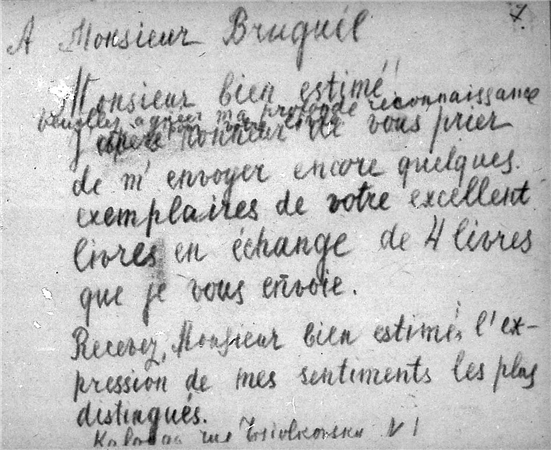 7.
A Monsieur Bruguél
Monsieur bien estimé!
Veuillez agréer ma profonde reconnaissance
J'espère honneur de vous prier
de m'envoyer encore quelques
exemplaires de votre excellent
livres en échange de 4 livres
que je vous envoie.
Recevez, Monsieur bien estimé, l'ex-
pression de mes sentiments les plus
distingués.
Kalouga rue Tsiolkovsky N 1